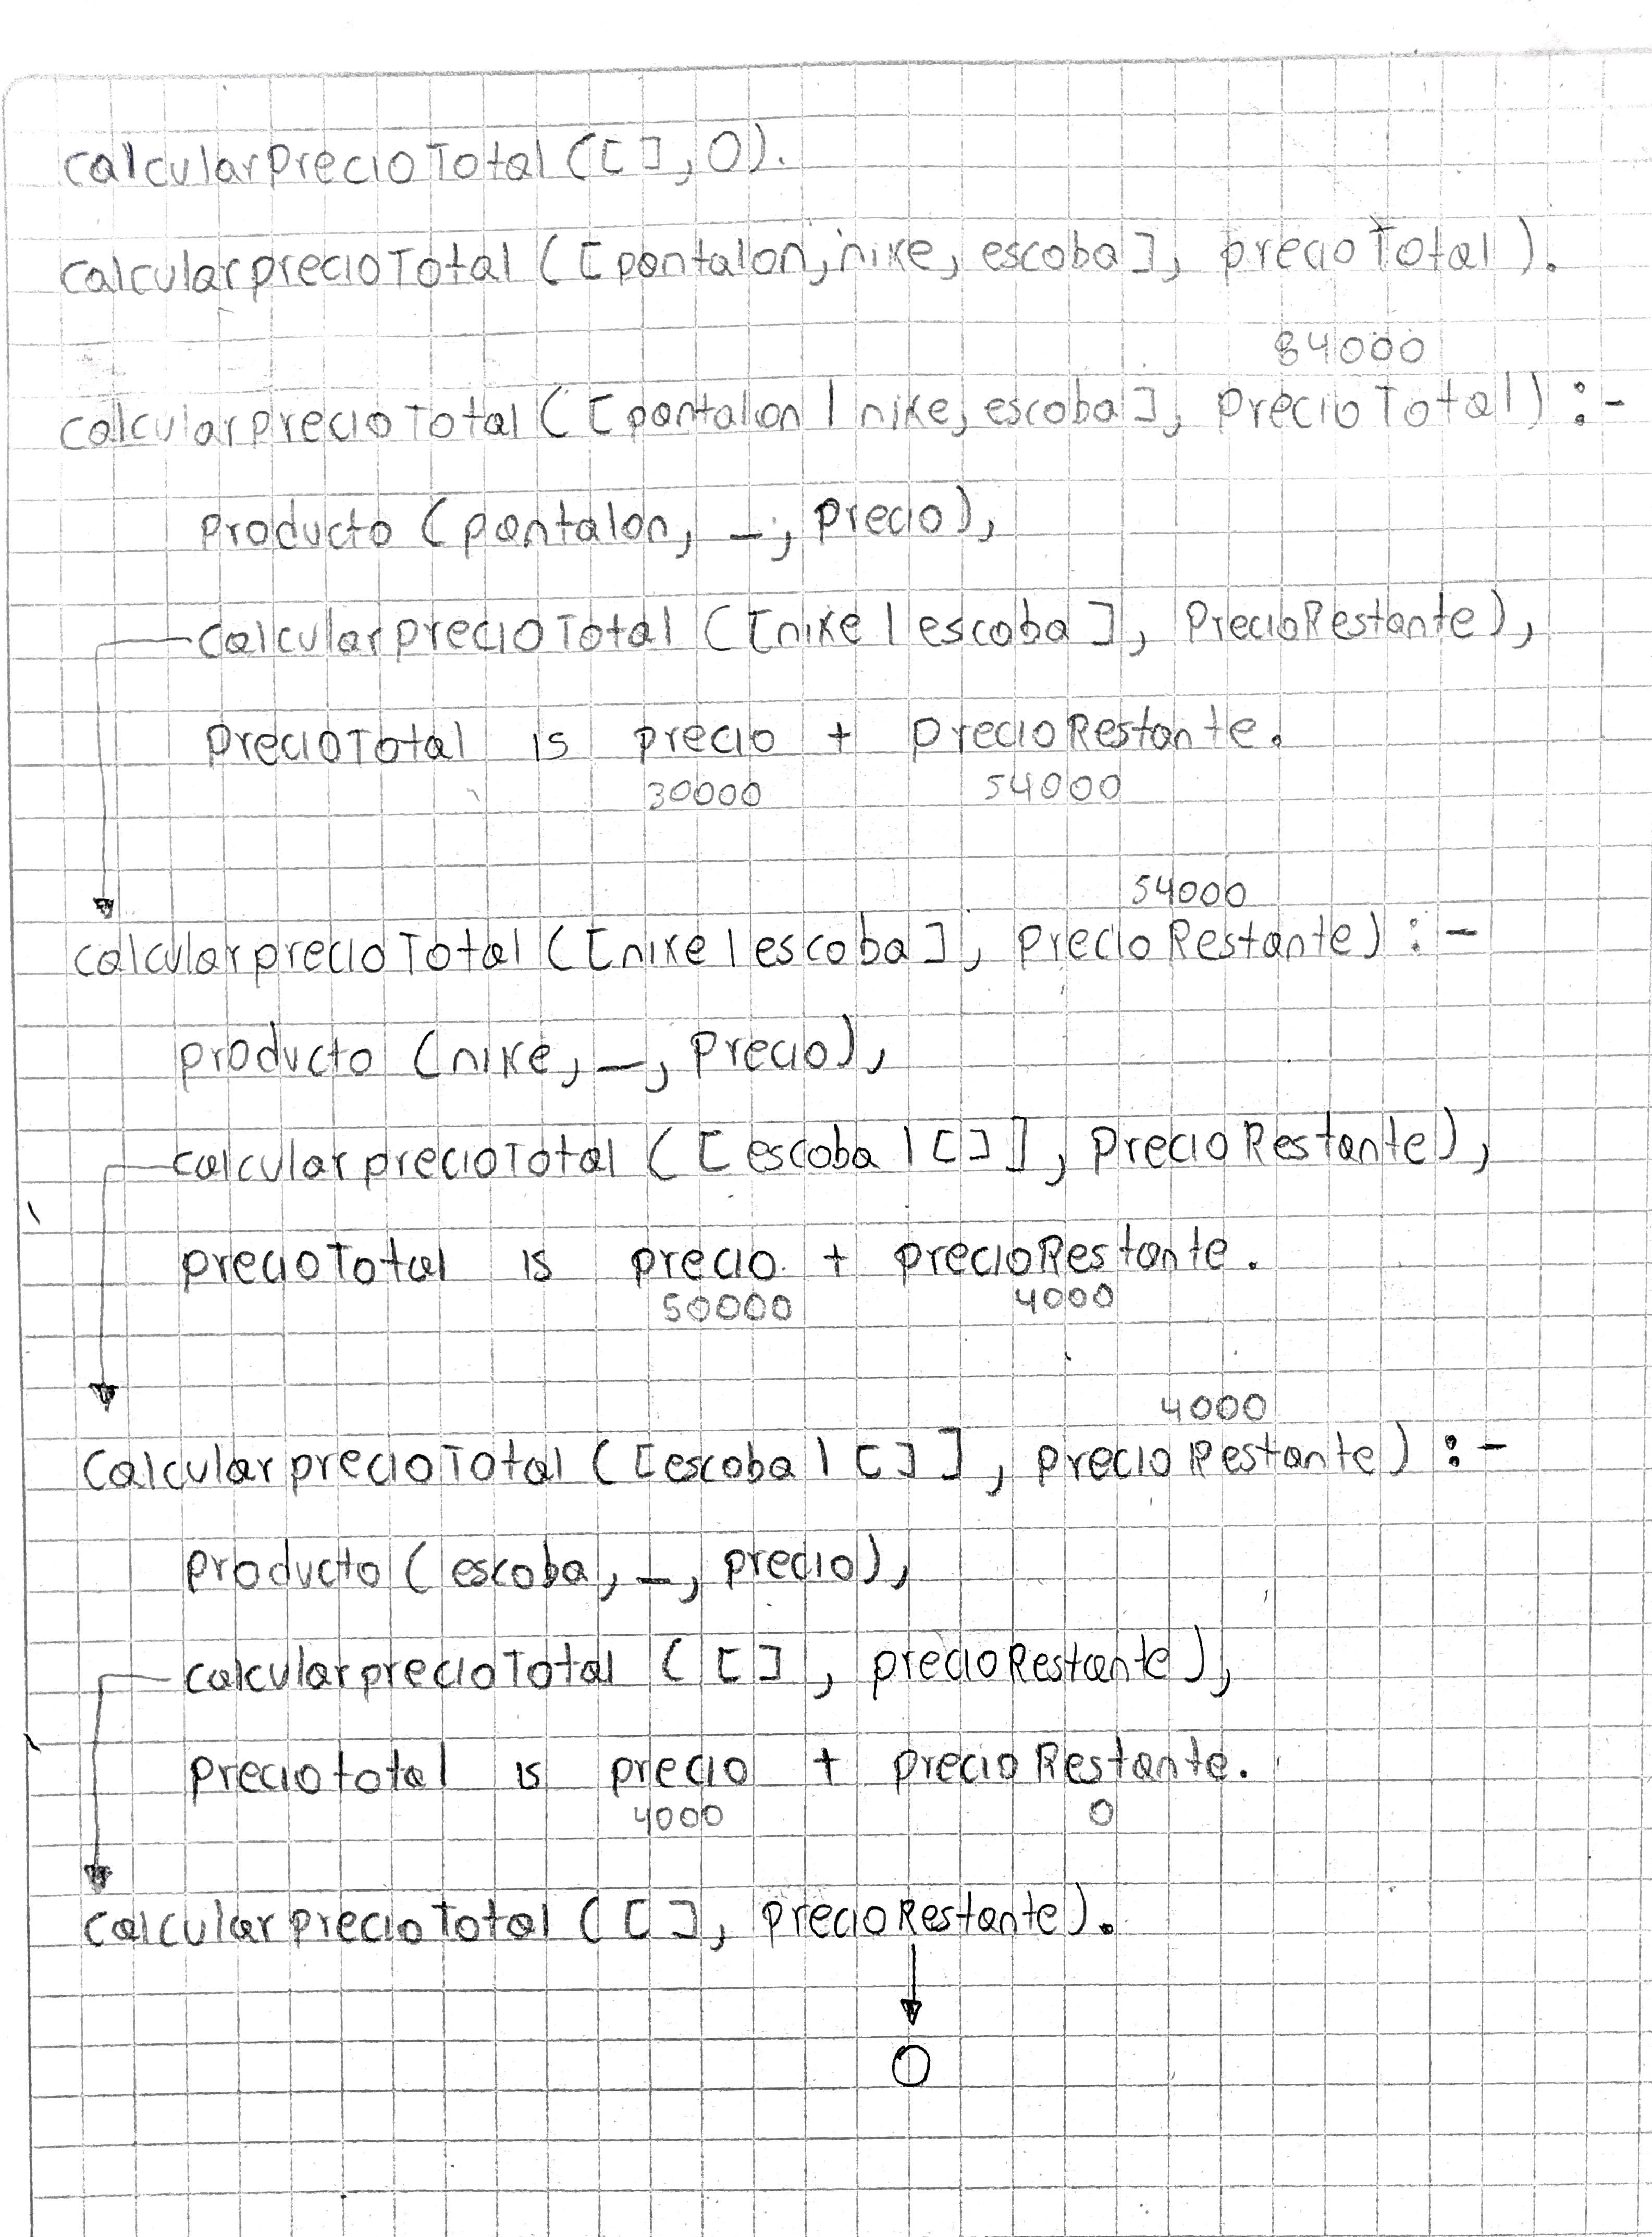 calcularprecioTotal([],0).
calcularprecioTotal([pantalon,nike, escoba], precioTotal).
84000
calcularprecioTotal([pantalon | nike,escoba], PrecioTotal) :-
producto (pantalon, _, precio),
calcularprecioTotal ([nike | escoba], PrecioRestante),
PrecioTotal is precio + precioRestante.
30000 54000
54000
calcularprecioTotal([nike|escoba], PrecioRestante) :-
producto (nike, _, Precio),
calcularprecioTotal ([escoba | []], PrecioRestante),
precioTotal is precio + precioRestante.
50000 4000
4000
calcularprecioTotal ([escoba | []], precioRestante) :-
producto (escoba, _, precio),
calcularprecioTotal ([], precioRestante),
preciototal is precio + precioRestante.
4000 0
calcularprecioTotal ([], precioRestante).
0